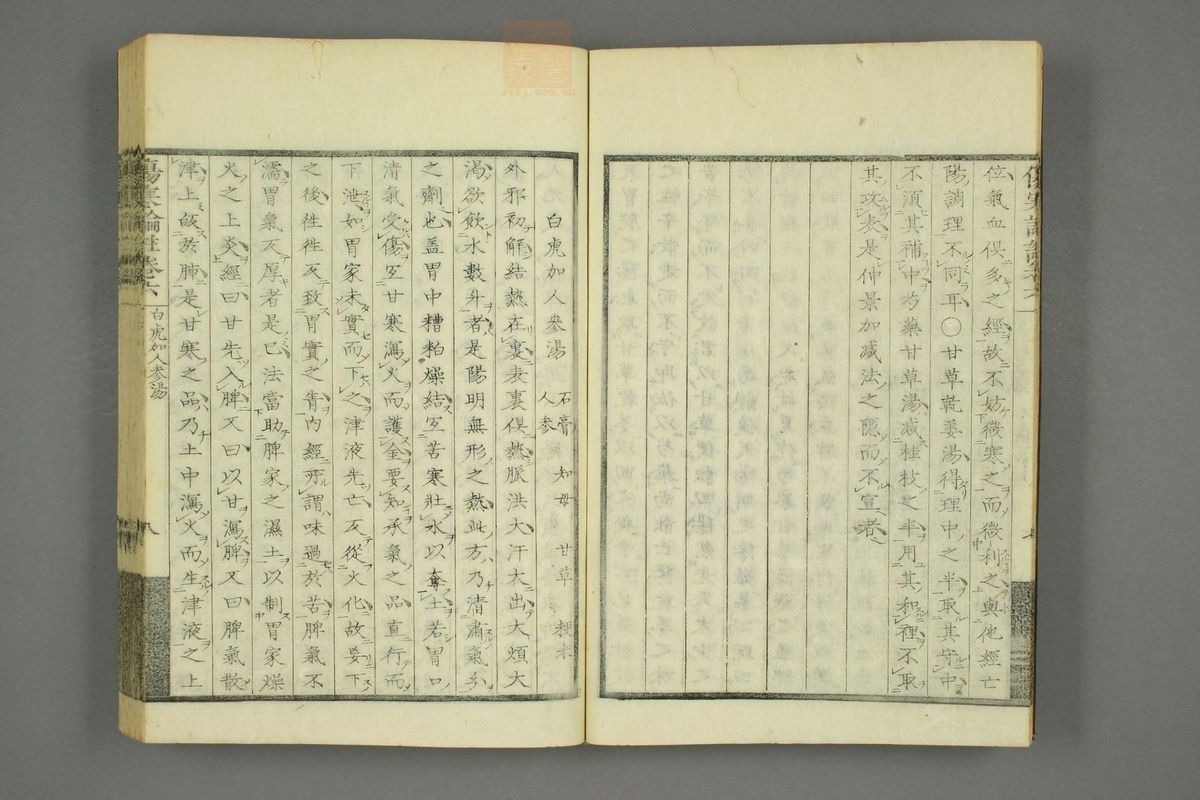 位氣血俱多之經故不妨微寒之而微利之與他經亡
陽調理不同耳○甘草乾姜湯得理中之半取其守中
不須其補中芍藥甘草湯减桂枝之半用其和裡不取
其攻表是仲景加减法之隠而不宣者
白虎加人參湯 石膏 知母 甘草 粳米
人參
外邪初解結熱在裏表裏俱熱脈洪大汗大出大煩大
渴欲飲水數升者是陽明無形之熱此方乃清肅氣分
之劑也盖胃中糟粕燥結宐苦寒壯水以奪土若胃口
清氣受傷宐甘寒瀉火而護金要知承氣之品直行而
下泄如胃家未實而下之津液先亡反從火化故妄下
之後徃徃反致胃實之眚內經所謂味過於苦脾氣不
濡胃氣乃厚者是已法當助脾家之濕土以制胃家燥
火之上炎經曰甘先入脾又曰以甘瀉脾又曰脾氣散
津上皈於肺是甘寒之品乃土中瀉火而生津液之上
傷寒論註卷六
白虎加人参湯
八